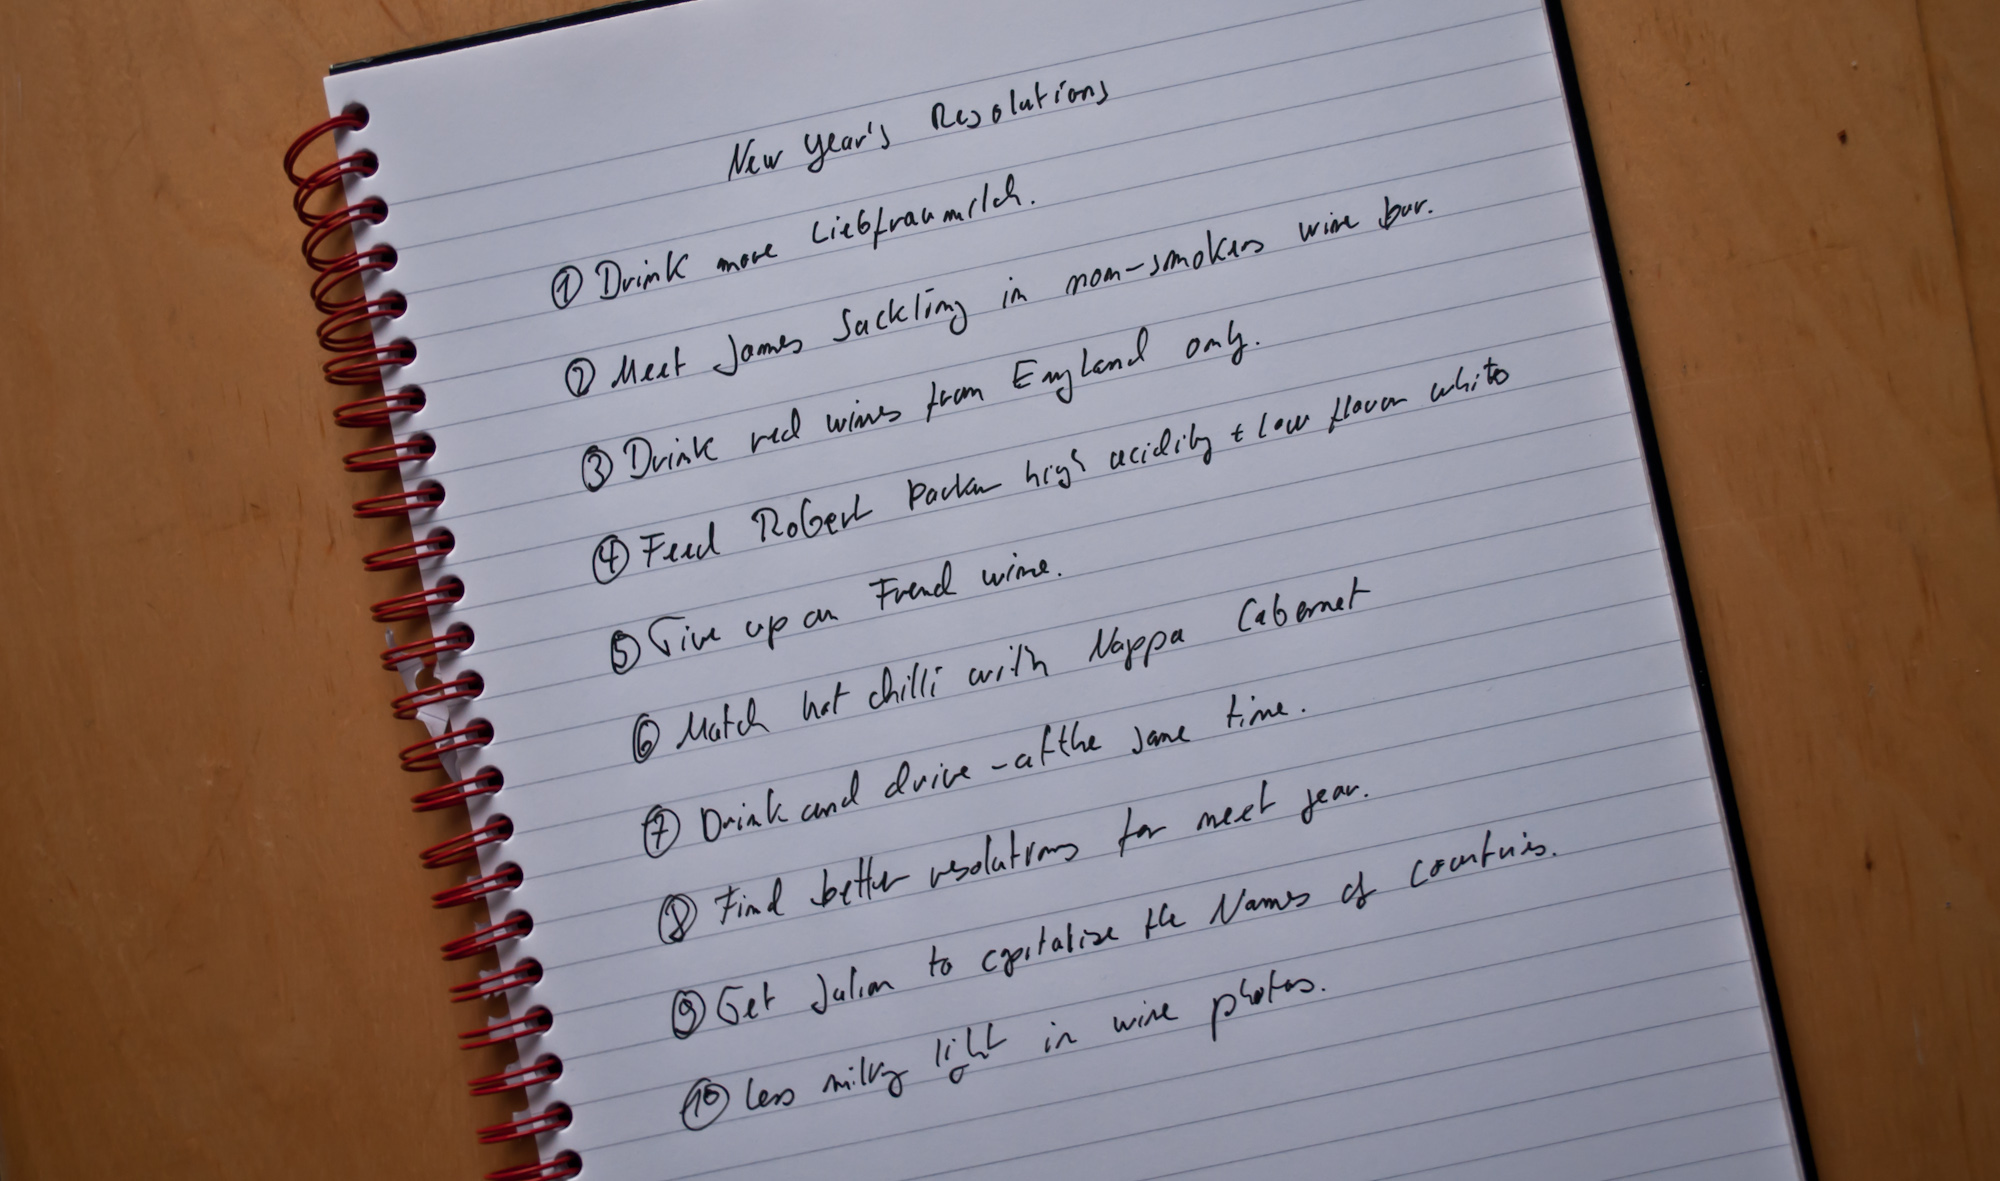 New Year's Resolutions
① Drink more Liebfraumilch.
② Meet James Suckling in non-smokers wine bar.
③ Drink red wines from England only.
④ Feed Robert Parker high acidity + low flavour white
⑤ Give up on French wine.
⑥ Match hot chilli with Nappa Cabernet
⑦ Drink and drive - at the same time.
⑧ Find better resolutions for next year.
⑨ Get Julian to capitalise the Names of countries.
⑩ Less milky light in wine photos.